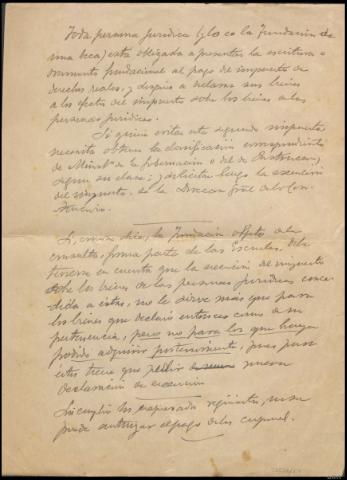 Toda persona jurídica (y lo es la Fundación de
una beca) está obligada a presentar la escritura o
documento fundacional al pago del impuesto de
derechos reales, y después a declarar sus bienes
a los efectos del impuesto sobre los bienes de las
personas jurídicas.
Si quiere evitar este segundo impuesto
necesita obtener la clasificación correspondiente
del Minist.º de la Gobernación o del de Instrucción,
según su clase; y solicitar luego la exención
del impuesto de la Dirección Gral de lo Con
tencioso.
Si, como dice, la Fundación objeto de la
consulta, forma parte de las Escuelas, debe
tenerse en cuenta que la exención del impuesto
sobre los bienes de las personas jurídicas conce
dida a éstas, no le sirve más que para
los bienes que declaró entonces como de su
pertenencia, pero no para los que haya
podido adquirir posteriormente, pues para
estos tiene que pedir nueva
declaración de exención
Sin cumplir los expresados requisitos, no se
puede autorizar el pago de los